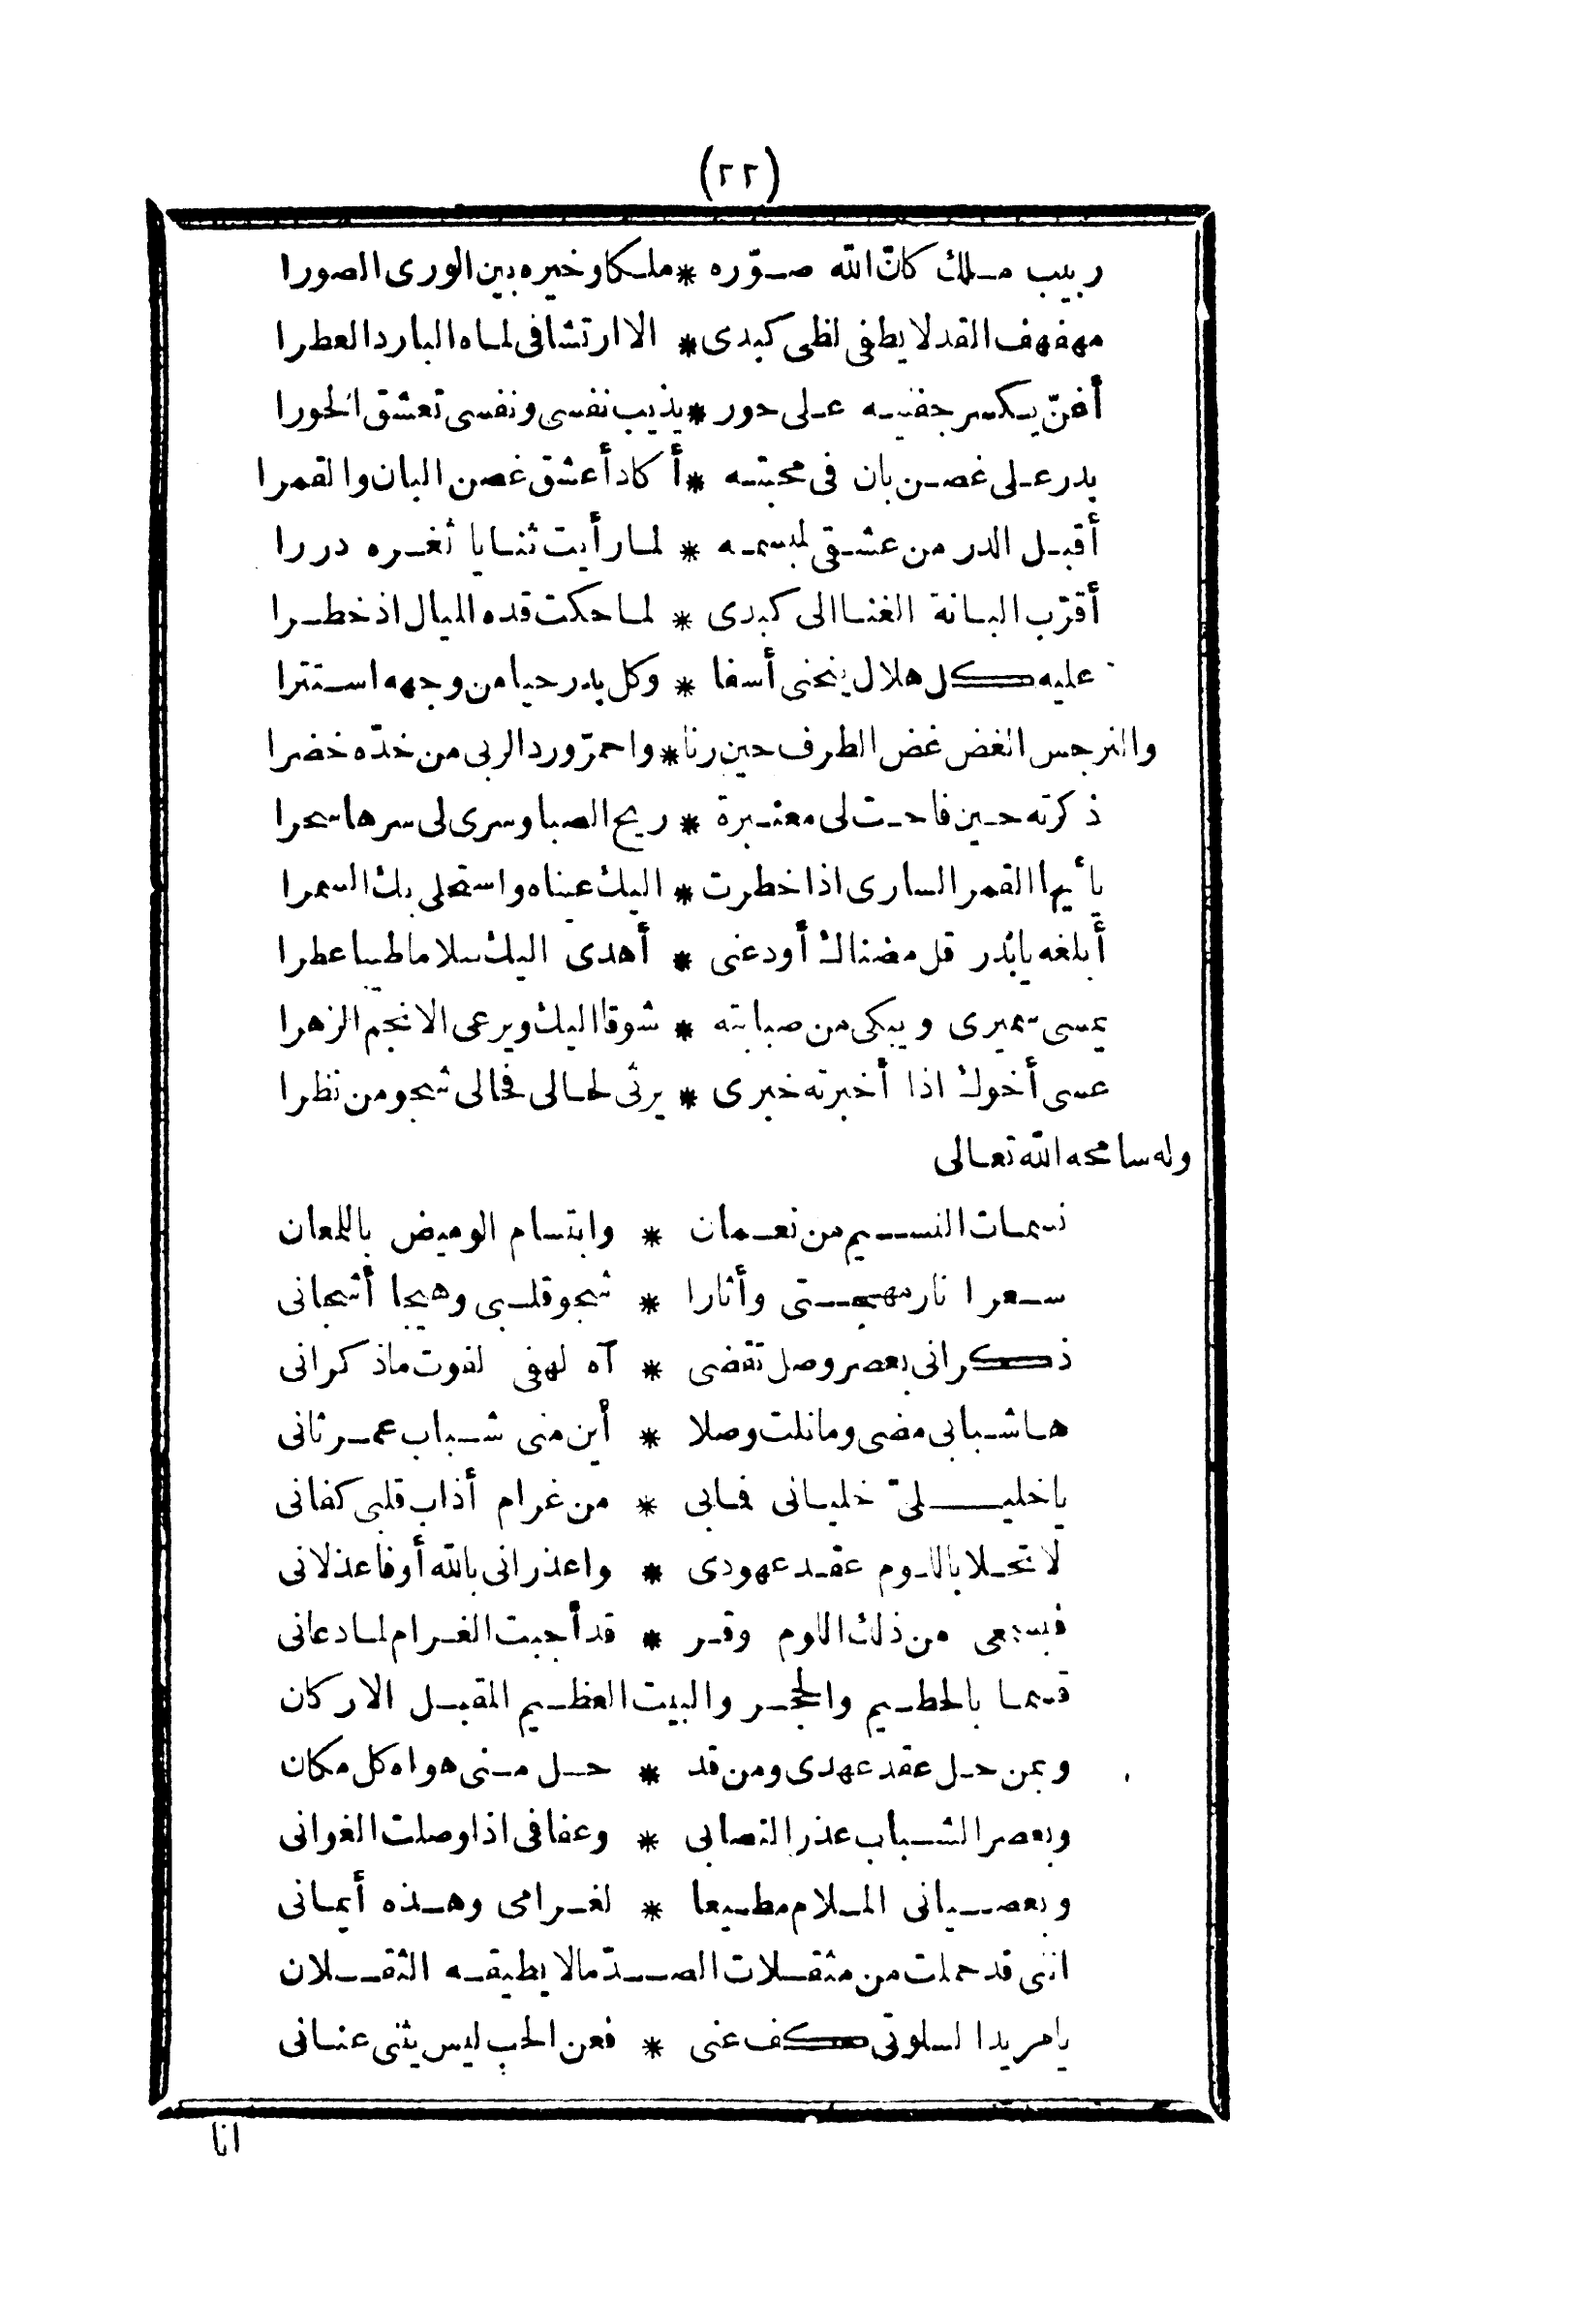 (٢٢)
ربيب ملك كانّ الله صوّره * ملكا وخيره بين الورى الصورا
مهفهف القد لا يطفى لظى كبدى * الا ارتشافى لماه البارد العطرا
أغنّ يكسر جفنيه على حور * يذيب نفسى ونفسى تعشق الحورا
بدر على غصن بان فى محبته * أكاد أعشق غصن البان والقمرا
أقبل الدر من عشقى لمبسمه * لما رأيت ثنايا ثغره دررا
أقرّب البانة الغنا الى كبدى * لما حكت قده الميال اذ خطرا
عليه كل هلال ينحنى أسفا * وكل بدر حيا من وجهه استترا
والنرجس الغض غض الطرف حين رنا * واحمرّ ورد الربى من خدّه خضرا
ذكرته حين فاحت لى معنبرة * ريح الصبا وسرى لى سرها سحرا
يا أيها القمر السارى اذا خطرت * اليك عيناه واستحلى بك السمرا
أبلغه يا بدر قل مضناك أودعنى * أهدى اليك سلاما طيبا عطرا
يمسى سميرى ويبكى من صبابته * شوقا اليك ويرعى الانجم الزهرا
عسى أخوك اذا أخبرته خبرى * يرثى لحالى فحالى شجو من نظرا
وله سامحه الله تعالى
نسمات النسيم من نعمان * وابتسام الوميض باللمعان
سعرا نار مهجتى وأثارا * شجو قلبى وهيجا أشجانى
ذكرانى بعصر وصل تقضى * آه لهفى لفوت ما ذكرانى
ها شبابى مضى وما نلت وصلا * أين منى شباب عمر ثانى
يا خليلىّ خليانى فما بى * من غرام أذاب قلبى كفانى
لا تحلا باللوم عقد عهودى * واعذرانى بالله أو فاعذلانى
فبسمعى من ذلك اللوم وقر * قد أجبت الغرام لما دعانى
قسما بالحطيم والحجر والبيت العظيم المقبل الاركان
وبمن حل عقد عهدى ومن قد * حل منى هواه كل مكان
وبعصر الشباب عذر التصابى * وعفافى اذا وصلت الغوانى
وبعصيانى الملام مطيعا * لغرامى وهذه أيمانى
اننى قد حملت من مثقلات الصدّ ما لا يطيقه الثقلان
يا مريدا لسلوتى كف عنى * فعن الحب ليس يثنى عنانى
انا